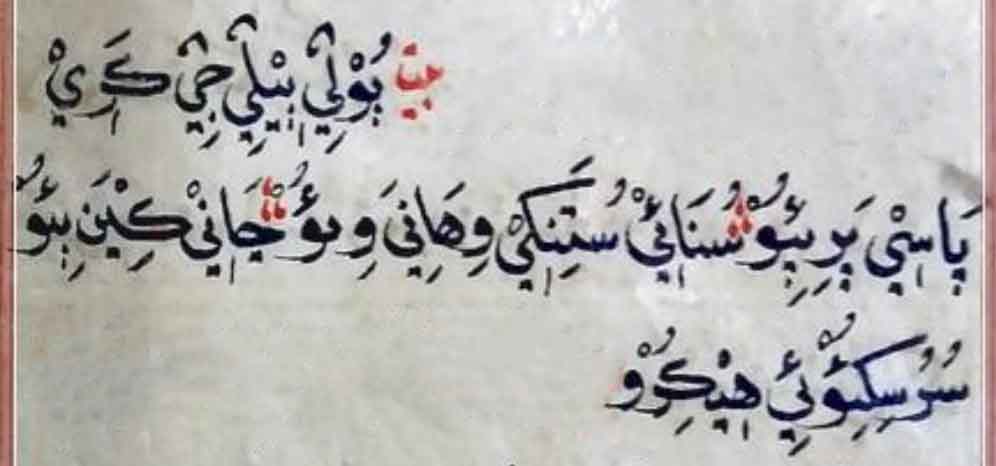 بيت بُوْلِيْ بِيْلِيْ جِيْ كَرِيْ
پَاسِيْ پَرِ پِئُوْ سُنَائِيْ سُتَنِكِيْ وِهَانِيَ وِئُو جَانِيْ كِيْنَ پِئُو
سُرُ هِيْكِرُوْ